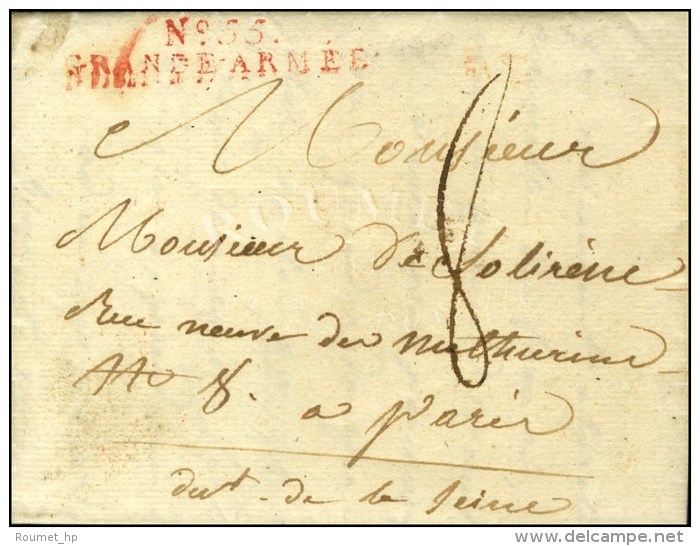 No. 55.
GRANDE ARMÉE
Monsieur
8
Monsieur De Solirène
Rue neuve des Mathurins
No 8.
a paris
dept. de la Seine
ROUMET
© Roumet_hp
delcampe.net